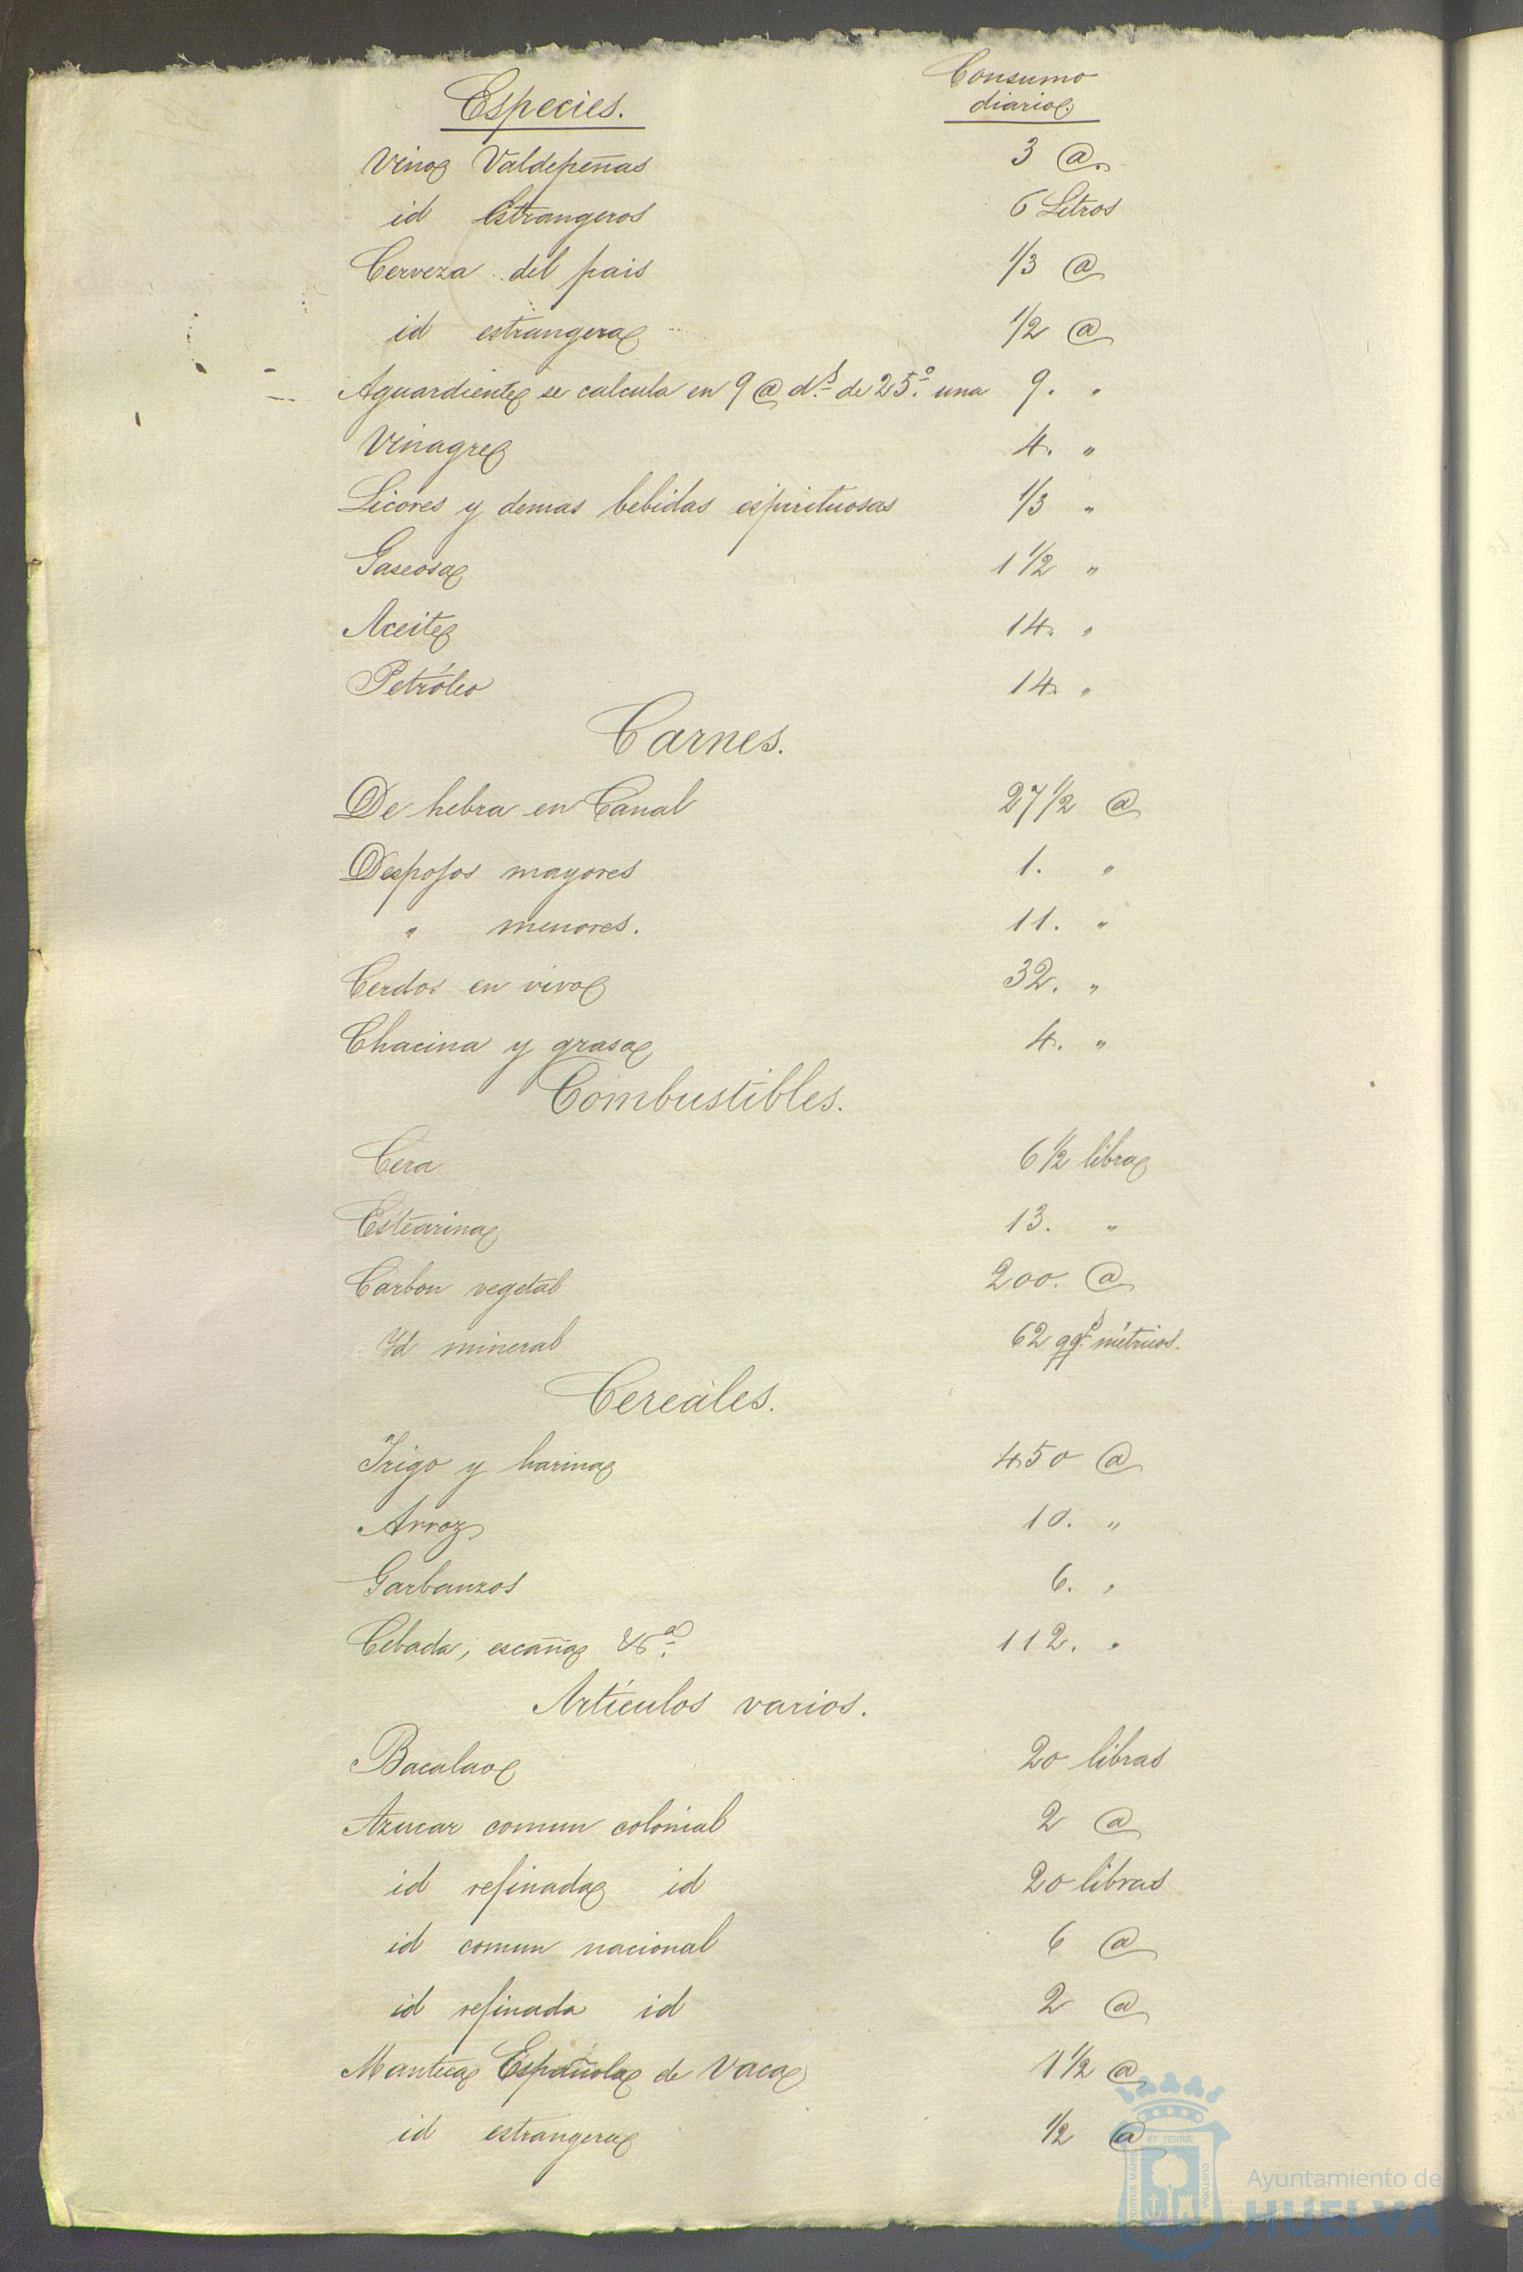 Especies. Consumo
diario
Vino Valdepeñas 3 @.
id Estrangeros 6 Litros
Cerveza del pais 1/3 @
id estrangera 1/2 @
Aguardiente se calcula en 9 @ d.s de 25.º una 9. "
Vinagre 4. "
Licores y demas bebidas espirituosas 1/3 "
Gaseosa 1 1/2 "
Aceite 14. "
Petróleo 14. "
Carnes.
De hebra en Canal 27 1/2 @
Despojos mayores 1. "
" menores. 11. "
Cerdos en vivo 32. "
Chacina y grasa 4. "
Combustibles.
Cera 6 1/2 libra
Estearina 13. "
Carbon vegetal 200. @
Id mineral 62 qq.s métricos.
Cereales.
Trigo y harina 450 @
Arroz 10. "
Garbanzos 6. "
Cebada, escaña &.a 112. "
Artículos varios.
Bacalao 20 libras
Azucar comun colonial 2 @
id refinada id 20 libras
id comun nacional 6 @
id refinada id 2 @
Manteca Española de Vaca 1 1/2 @
id estrangera 1/2 @
Ayuntamiento de
HUELVA